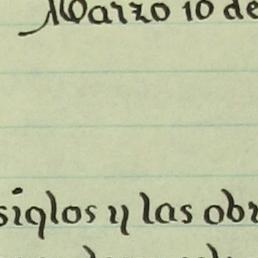 Marzo 10 de
siglos y las